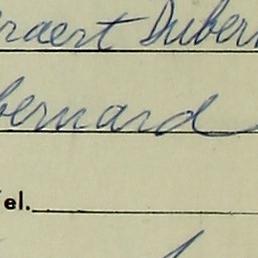 raert Duber
bernard
Tel.